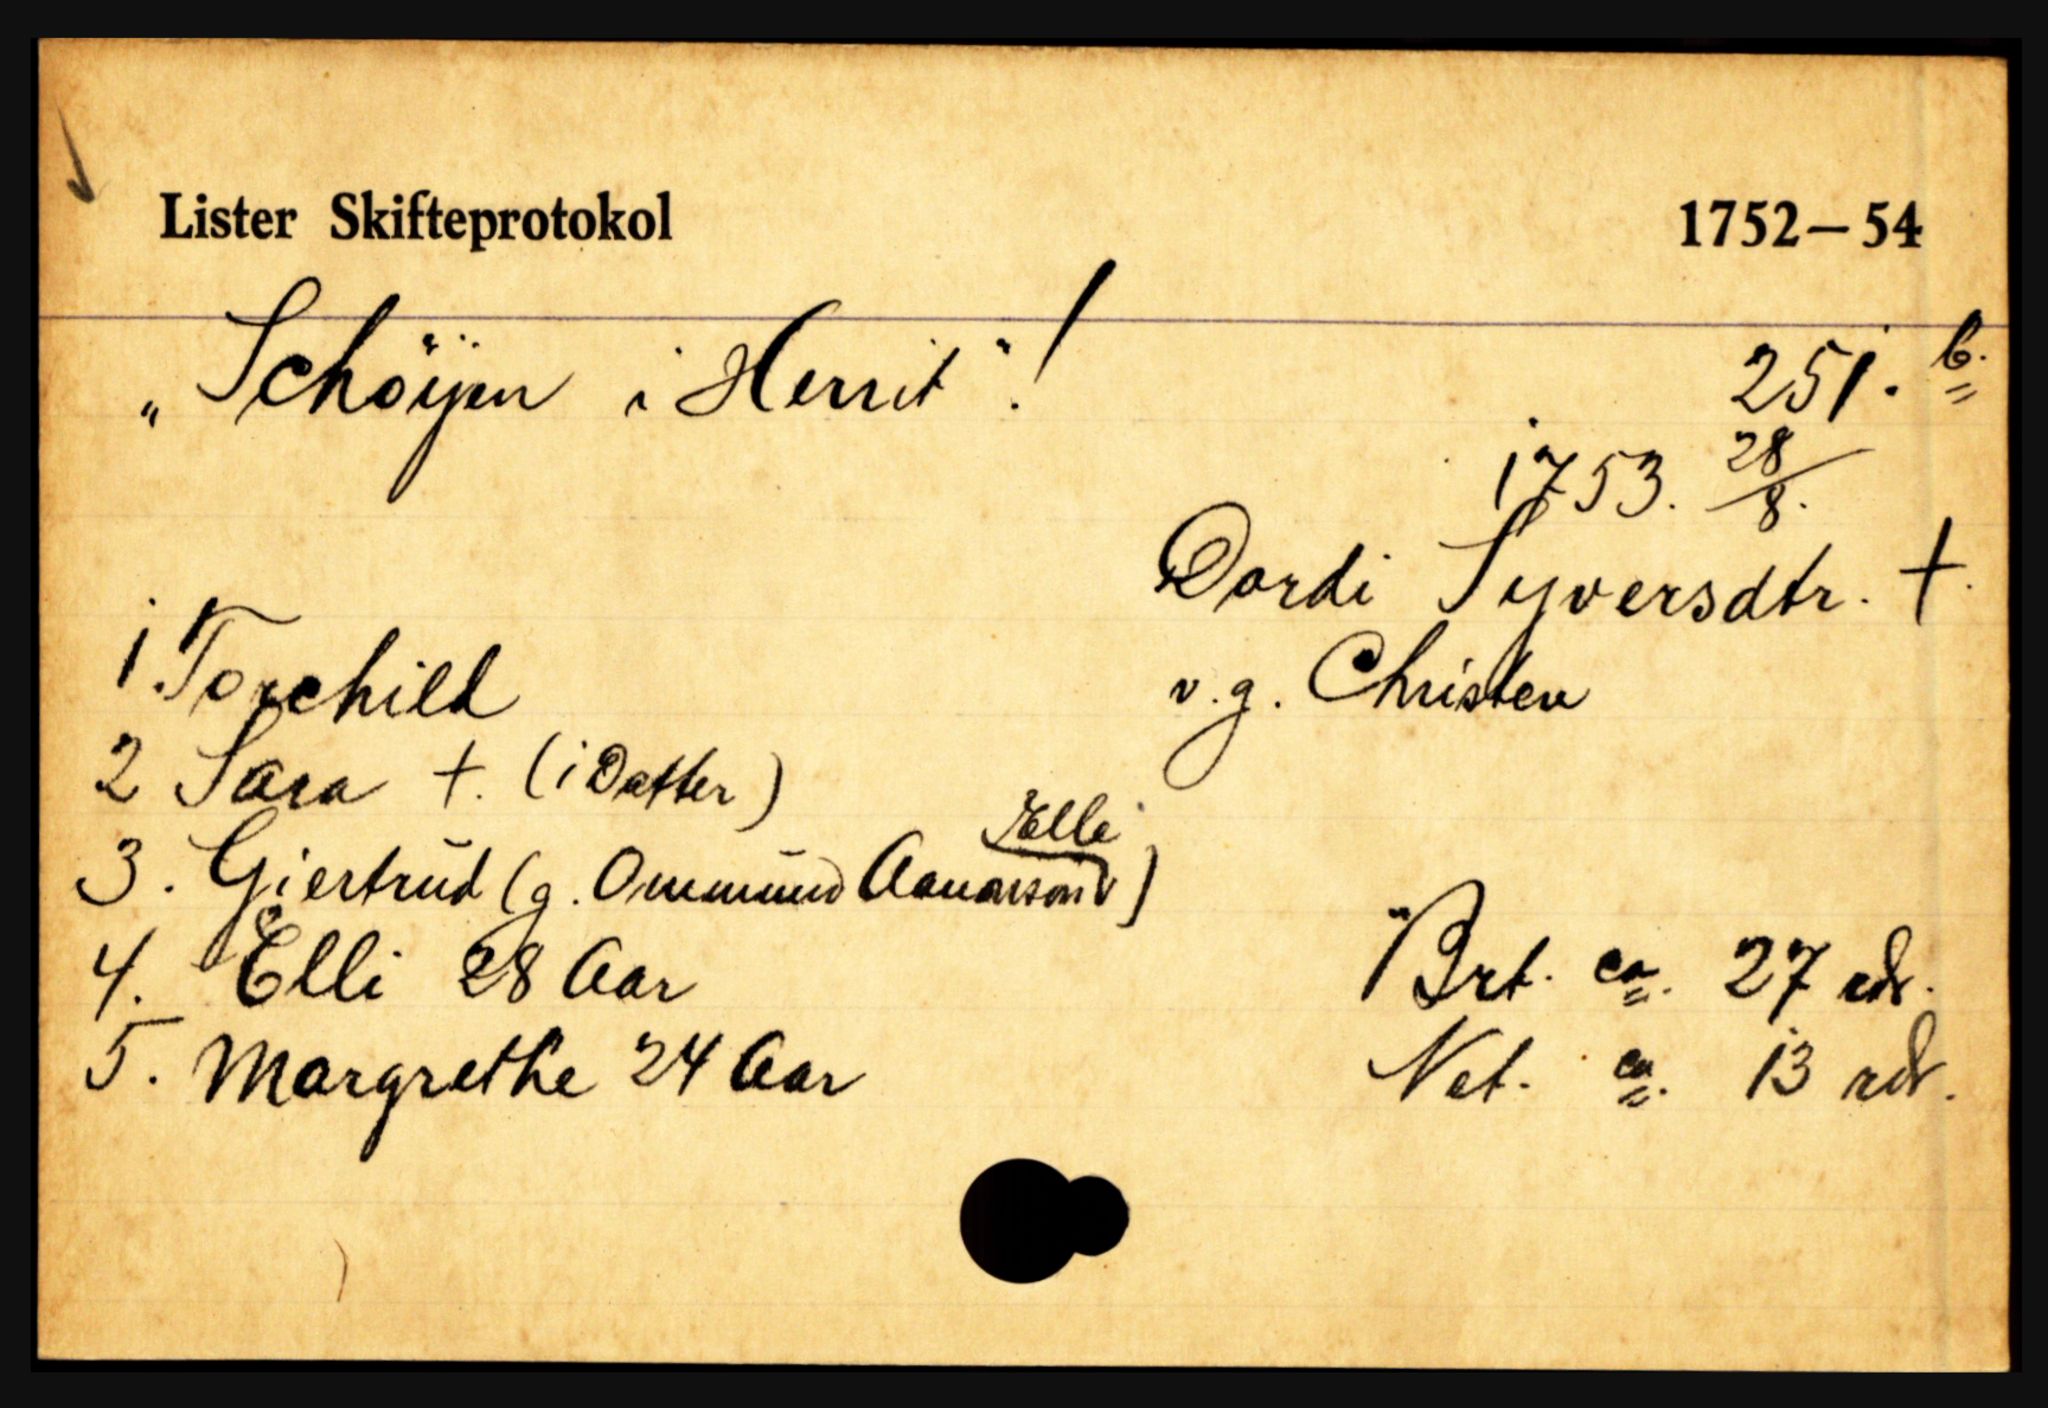 Lister Skifteprotokol 1752—54
„Schöÿen i Herrit"!
251. b.
1753. 28/8.
Dordi Syversdtr. †.
1. Torchild
v.g. Christen
2 Sara †. (1 Datter)
Elli
3. Giertrud (g. Ommund Aanonson)
4. Elli 28 Aar
Brt. ca. 27 rdr.
5. Margrethe 24 Aar
Net. ca. 13 rdr.